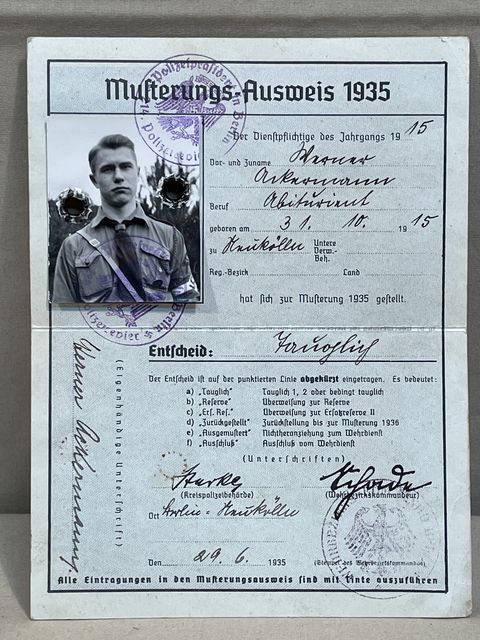 Musterungs-Ausweis 1935
Der Dienstpflichtige des Jahrgangs 19 15
Vor- und Zuname Werner
Ackermann
Beruf Abiturient
geboren am 31. 10. 1915
zu Neukölln Untere Verw.-Beh.
Reg.-Bezirk Land
hat sich zur Musterung 1935 gestellt.
Entscheid: Tauglich
Der Entscheid ist auf der punktierten Linie abgekürzt eingetragen. Es bedeutet:
a) „Tauglich" Tauglich 1, 2 oder bedingt tauglich
b) „Reserve" Überweisung zur Reserve
c) „Ers. Res." Überweisung zur Ersatzreserve II
d) „Zurückgestellt" Zurückstellung bis zur Musterung 1936
e) „Ausgemustert" Nichtheranziehung zum Wehrdienst
f) „Ausschluß" Ausschluß vom Wehrdienst
(Unterschriften)
Starke Schade
(Kreispolizeibehörde) (Wehrbezirkskommandeur)
Ort Berlin-Neukölln
Den 29. 6. 1935 (Stempel des Wehrbezirkskommandos)
Alle Eintragungen in den Musterungsausweis sind mit Tinte auszuführen
Werner Ackermann
(Eigenhändige Unterschrift)
Polizeipräsident in Berlin
Polizei-Revier